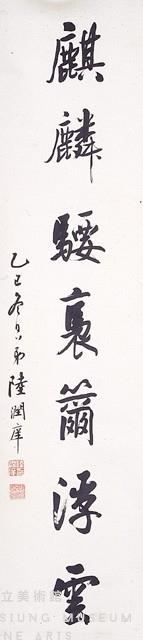 麒麟騕褭籋浮雲
乙巳冬日弟陸潤庠
立美術館
SIUNG MUSEUM
NE ARTS